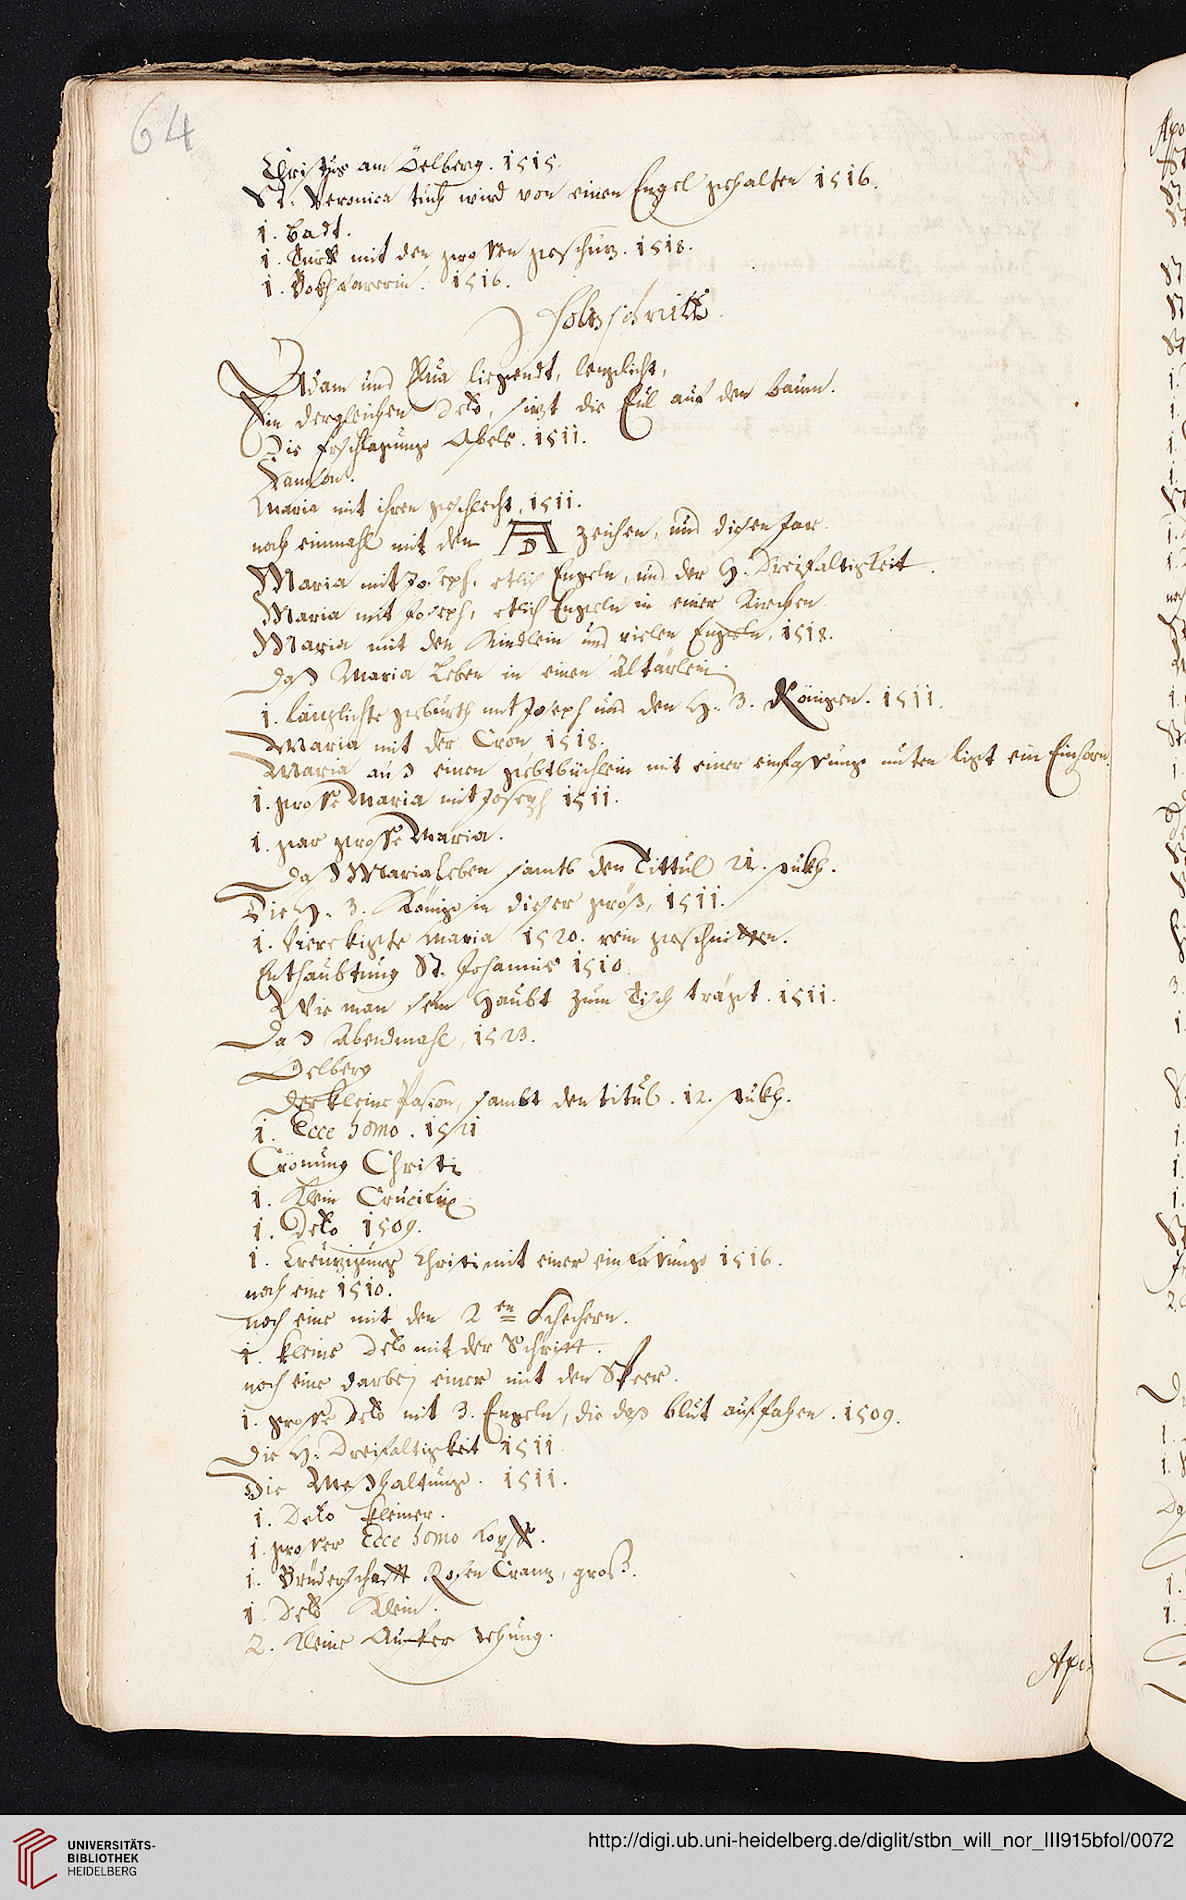 64
Christus am Öelberg. 1515.
St. Veronica tuch wird von einen Engel gehalten 1516.
1. Badt.
1. Türk mit den grosen geschüz. 1518.
1. 1516.
Holtzschnitt.
Adam und Eva ligendt, lenglicht,
Ein dergleichen Deto, sizt die Eul auf den baum.
Die Erschlagung Abels. 1511.
Samson.
Maria mit ihren geschlecht, 1511.
noch einmahl mit dem AD zeichen, und disen Jar.
Maria mit Joseph, etlich Engeln, und der H. Dreifaltigkeit.
Maria mit Joseph, etlich Engeln in einer Kirchen.
Maria mit den Kindlein und vielen Engeln, 1518.
Daß Maria Leben in einen Altärlein.
1. länglichte geburth mit Joseph und den H. 3. Königen. 1511.
Maria mit der Cron 1518.
Maria auß einen gebtbüchlein mit einer einfasung unten ligt ein Einhorn.
1. grosse Maria mit Joseph 1511.
1. gar grosse Maria.
Daß Maria Leben samb den Tittul 21. stükh.
Die H. 3. König in diser größ, 1511.
1. Vierekigte Maria 1520. rein geschnitten.
Enthaubtung St. Johannis 1510.
Wie man sein Haubt zum Tisch trägt. 1511.
Daß Abendmahl, 1523.
Oelberg
Der kleine Pasion, sambt den titul. 12. stükh.
1. Ecce homo. 1521
Crönung Christi
1. Klein Crucifix
1. Deto 1509.
1. Creuzigung Christi mit einer einfasung 1516.
noch eine 1510.
noch eine mit den 2en Schechern.
1. kleine Deto mit der Schrifft.
noch eine darbej einer mit den Speer.
1. grose Deto mit 3. Engeln, die daß blut auffahen. 1509.
Die H. Dreifaltigkeit 1511.
Die Meßhaltung. 1511.
1. Deto kleiner.
1. groser Ecce homo Kopff.
1. Brüderschafft Rosen Cranz, groß.
1. Deto Klein.
2. Kleine Aufersthung.
Apo
UNIVERSITÄTS-
BIBLIOTHEK
HEIDELBERG
http://digi.ub.uni-heidelberg.de/diglit/stbn_will_nor_III915bfol/0072